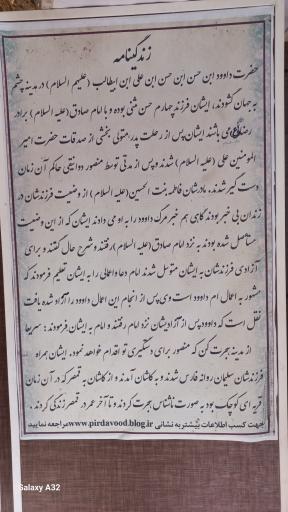 زندگینامه
حضرت داوود ابن حسن ابن حسن ابن علی ابن ابیطالب (علیهم السلام) در مدینه چشم
به جهان گشودند، ایشان فرزند چهارم حسن مثنی بوده و با امام صادق (علیه السلام) برادر
رضاعی می باشند ایشان پس از رحلت پدر متولی بخشی از صدقات حضرت امیر
المومنین علی (علیه السلام) شدند و پس از مدتی توسط منصور دوانیقی حاکم آن زمان
دستگیر شدند، مادرشان فاطمه بنت الحسین (علیه السلام) از وضعیت فرزندشان در
زندان بی خبر بودند گاهی هم خبر مرگ داوود را به او می دادند ایشان که از این وضعیت
مستأصل شده بودند به نزد امام صادق (علیه السلام) رفتند و شرح حال گفتند و برای
آزادی فرزندشان به ایشان متوسل شدند امام دعا و اعمالی را به ایشان تعلیم فرمودند که
مشهور به اعمال ام داوود است وی پس از انجام این اعمال داوود را آزاد شده یافت
نقل است که داوود پس از آزادیشان نزد امام رفتند و امام به ایشان فرمودند: سریعا
از مدینه هجرت کن که منصور برای دستگیری تو اقدام خواهد نمود. ایشان همراه
فرزندشان سلیمان روانه فارس شدند و به کاشان آمدند و از کاشان به قمصر که در آن زمان
قریه ای کوچک بود به صورت ناشناس هجرت کردند و تا آخر عمر در قمصر زندگی کردند.
جهت کسب اطلاعات بیشتر به نشانی www.pirdavood.blog.ir مراجعه نمایید
Galaxy A32